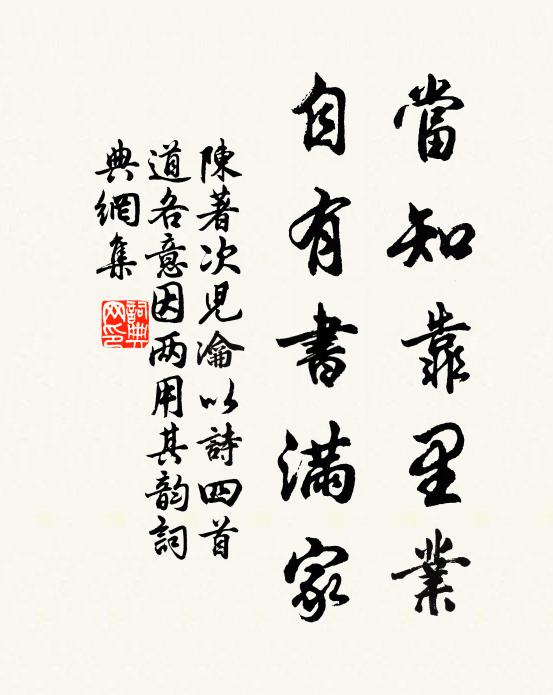 當知靠里業
自有書滿家
陳著次兒瀹以詩四首
道各意因两用其韵詞
典網集
詞典
网印